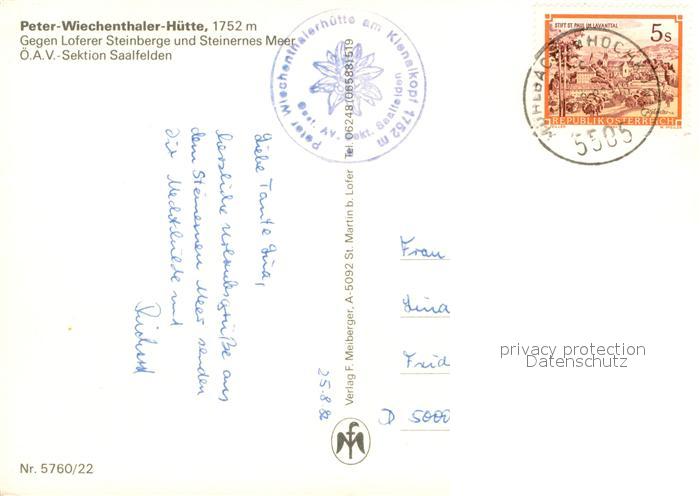 Peter-Wiechenthaler-Hütte, 1752 m
Gegen Loferer Steinberge und Steinernes Meer
Ö.A.V.-Sektion Saalfelden
Peter Wiechenthalerhütte am Kienalkopf 1752 m
Oest. AV. Sekt. Saalfelden
STIFT ST. PAUL IM LAVANTTAL
5 S
REPUBLIK ÖSTERREICH
5505
Liebe Tante Lina,
herzliche Urlaubsgrüße aus
dem Steinernen Meer senden
Dir Mechthilde und
Richard
25.8.88
Verlag F. Meiberger, A-5092 St. Martin b. Lofer Tel. 06248(06588)519
Frau
Lina
Frid
D 5000
privacy protection
Datenschutz
Nr. 5760/22